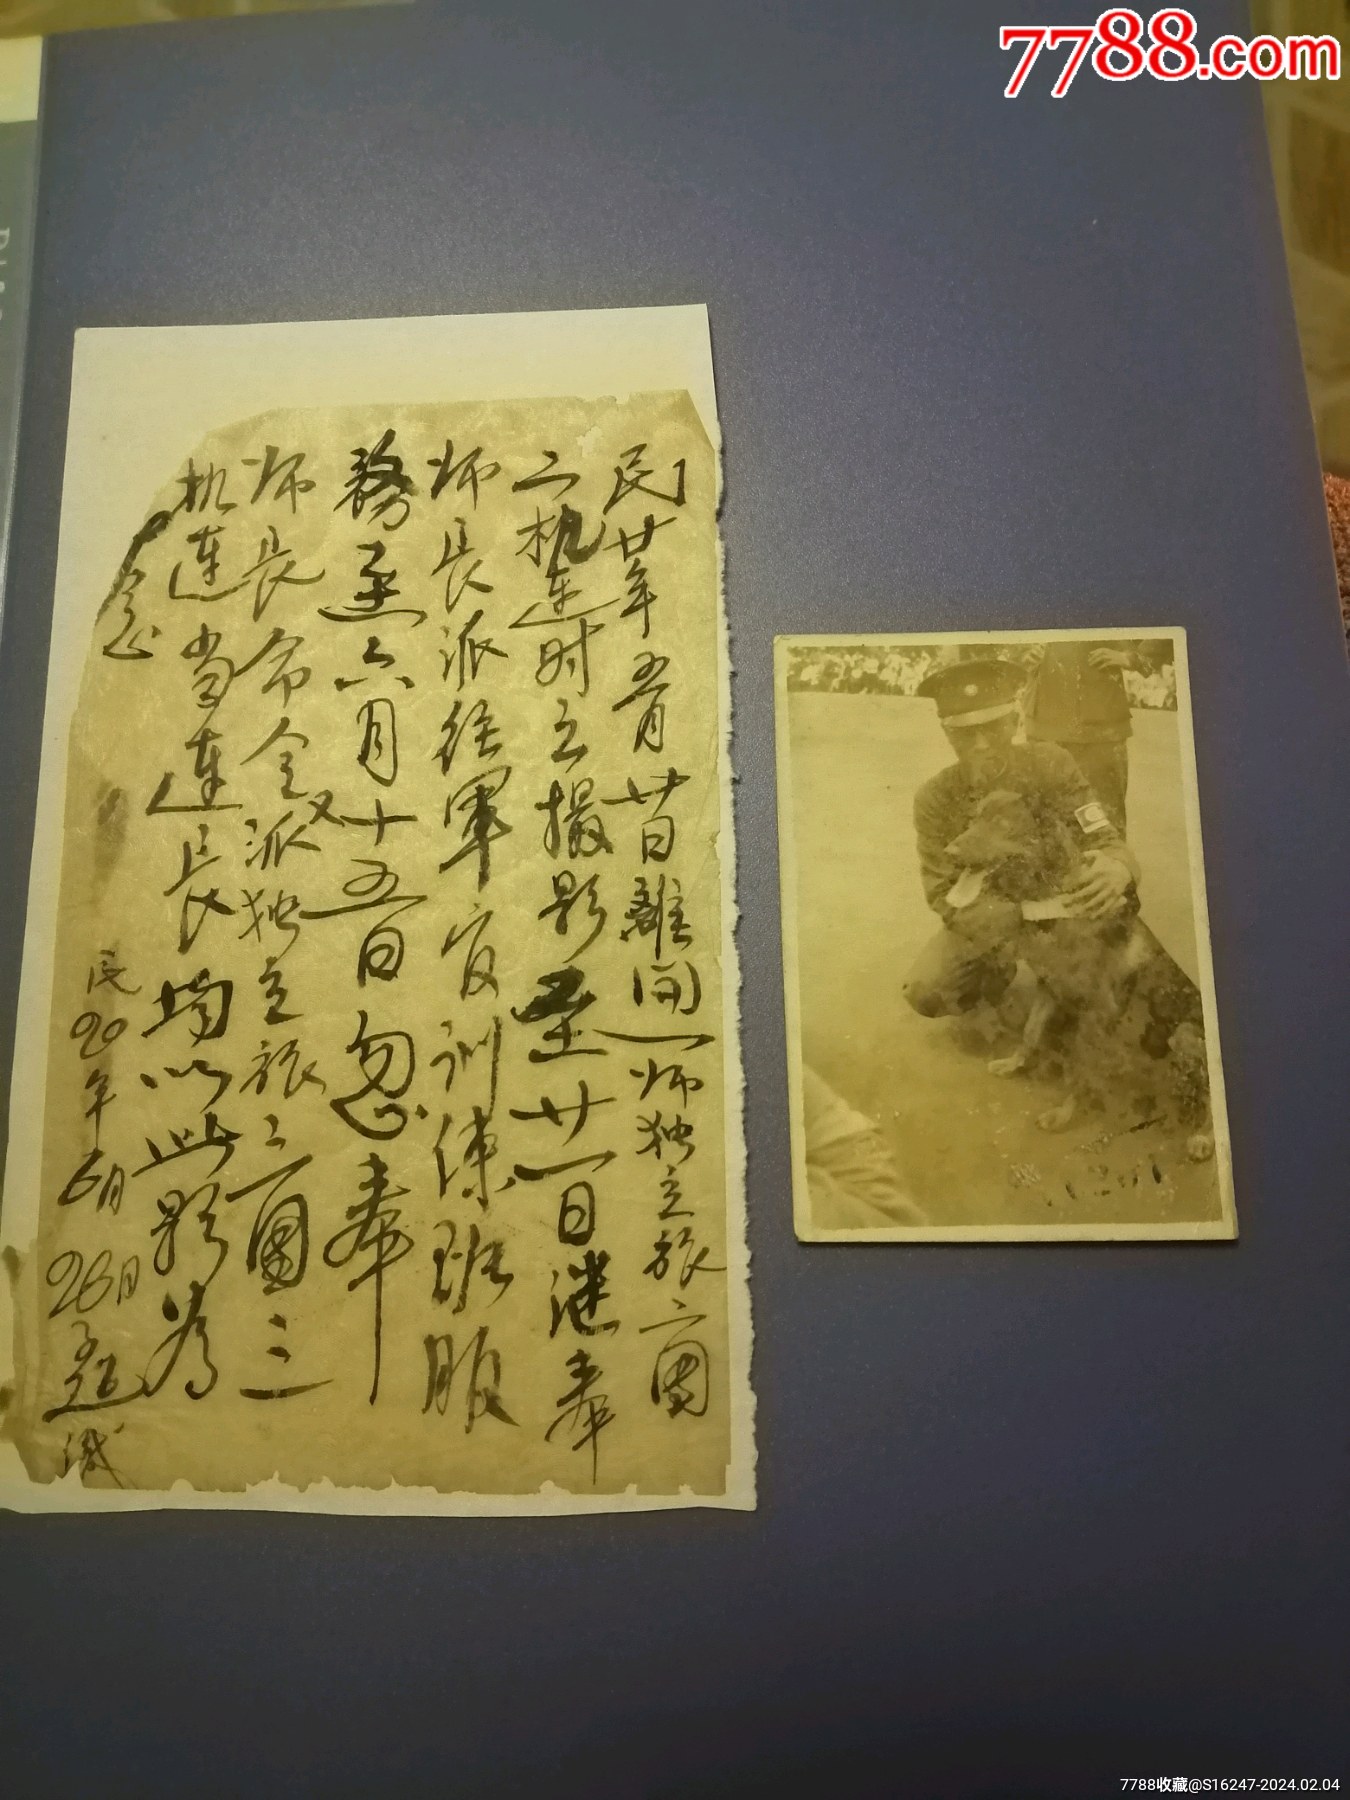 7788.com
民廿年五月廿日離開一师独立旅二團
二机连时之撮影至廿一日继奉
师長派往軍官训练班服
務迄六月十五日忽奉
师長命令又派独立旅二團三
机连当连長均以此影为
念
民20年6月26日題识
7788收藏@S16247-2024.02.04